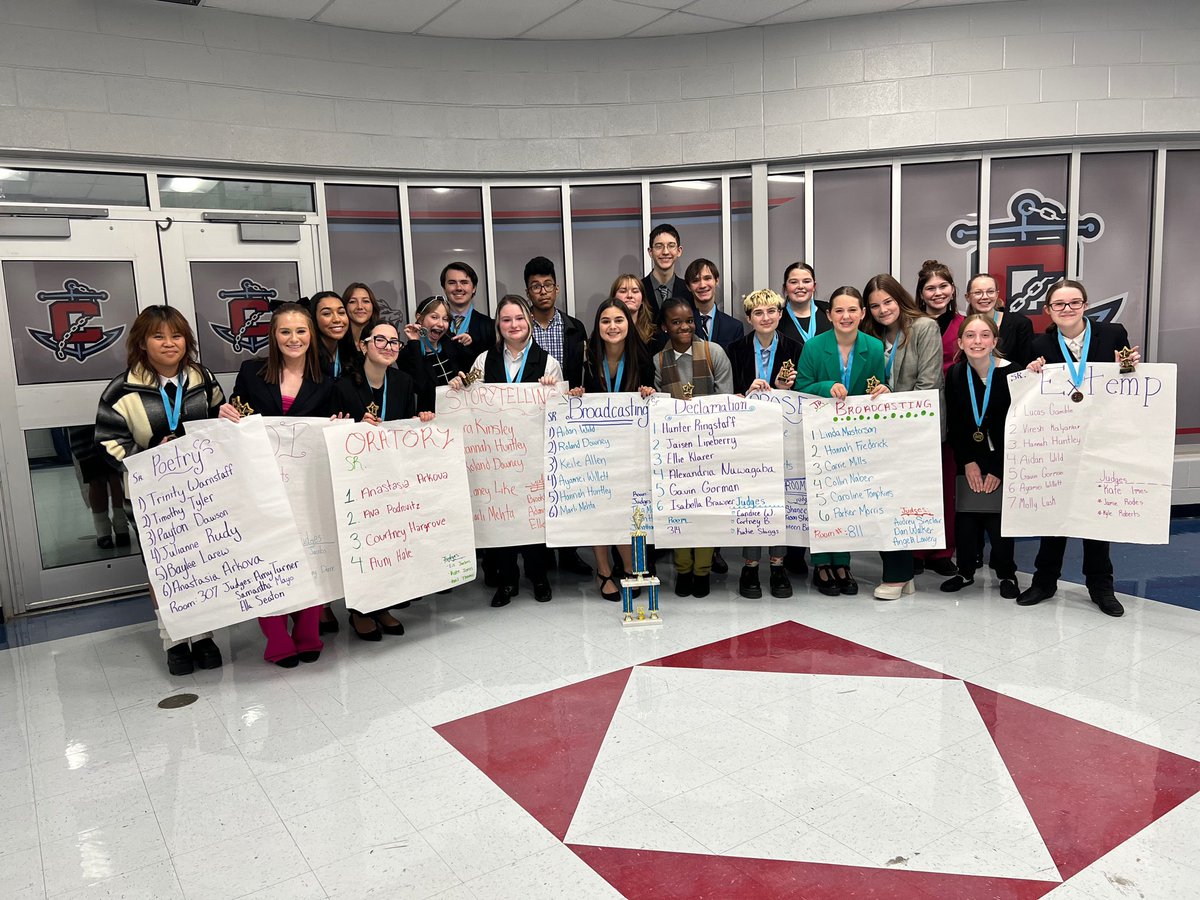 SR. Poetry
1) Trinity Warnstaff
2) Timothy Tyler
3) Payton Dawson
4) Julianne Rudy
5) Baylee Larew
6) Anastasia Arkova
Room: 307 Judges Amy Turner
Samantha Mayo
Ella Seaton
DI
ORATORY
SR.
1 Anastasia Arkova
2 Ava Podraitz
3 Courtney Hargrove
4 Aumi Hale
Judges:
STORYTELLING
Kinsley
Hannah Huntley
Roland Downey
Like
Mehta
SR. Broadcasting
1) Aidan Wild
2) Roland Downey
3) Keile Allen
4) Ayomei Willett
5) Hannah Huntley
6) Mark Mehta
Room
Judges
Declamation
1 Hunter Ringstaff
2 Jaisen Lineberry
3 Ellie Klaver
4 Alexandria Nuwagaba
5 Gavin Gorman
6 Isabella Brawner
Room
314
Judges
Candice W.
Cortney B.
Katie Skaggs
PROSE
ROOM
JR. BROADCASTING
1 Linda Masterson
2 Hannah Frederick
3 Carrie Mills
4 Collin Naber
5 Caroline Tompkins
6 Parker Morris
ROOM: 811
Judges
Audrey Sinclair
Dan Walker
Angela Lowery
SR. Extemp
1 Lucas Gamble
2 Vinesh Kalyankar
3 Hannah Huntley
4 Aidan Wild
5 Gavin Gorman
6 Ayomei Willett
7 Molly Lash
Judges
Kate
Jamie Rodes
Kyle Roberts